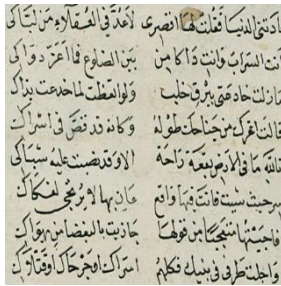 نادتني الدنيا فقلت لها اقصري لا عد في العقلاء من لباك
انت السراب وانت داء كامن بين الضلوع فما اعز دواك
مازلت خادعتي ببرق خلب ولو اتعظت لما خدعت بذاك
قالت اغرك من جناحك طوله وكانه قد نص في اشراك
تالله ما في الارض بقعة راحة الا وقد نصبت عليه شباك
طر حيث شيت فانت فيها واقع عان بها لا يرتجى لفكاك
فاجبتها متعجبا من قولها جاذبت بالبغضا من يهواك
واجلت طرفي في بنيك فكلهم اسراك او جرحاك او قتلاك